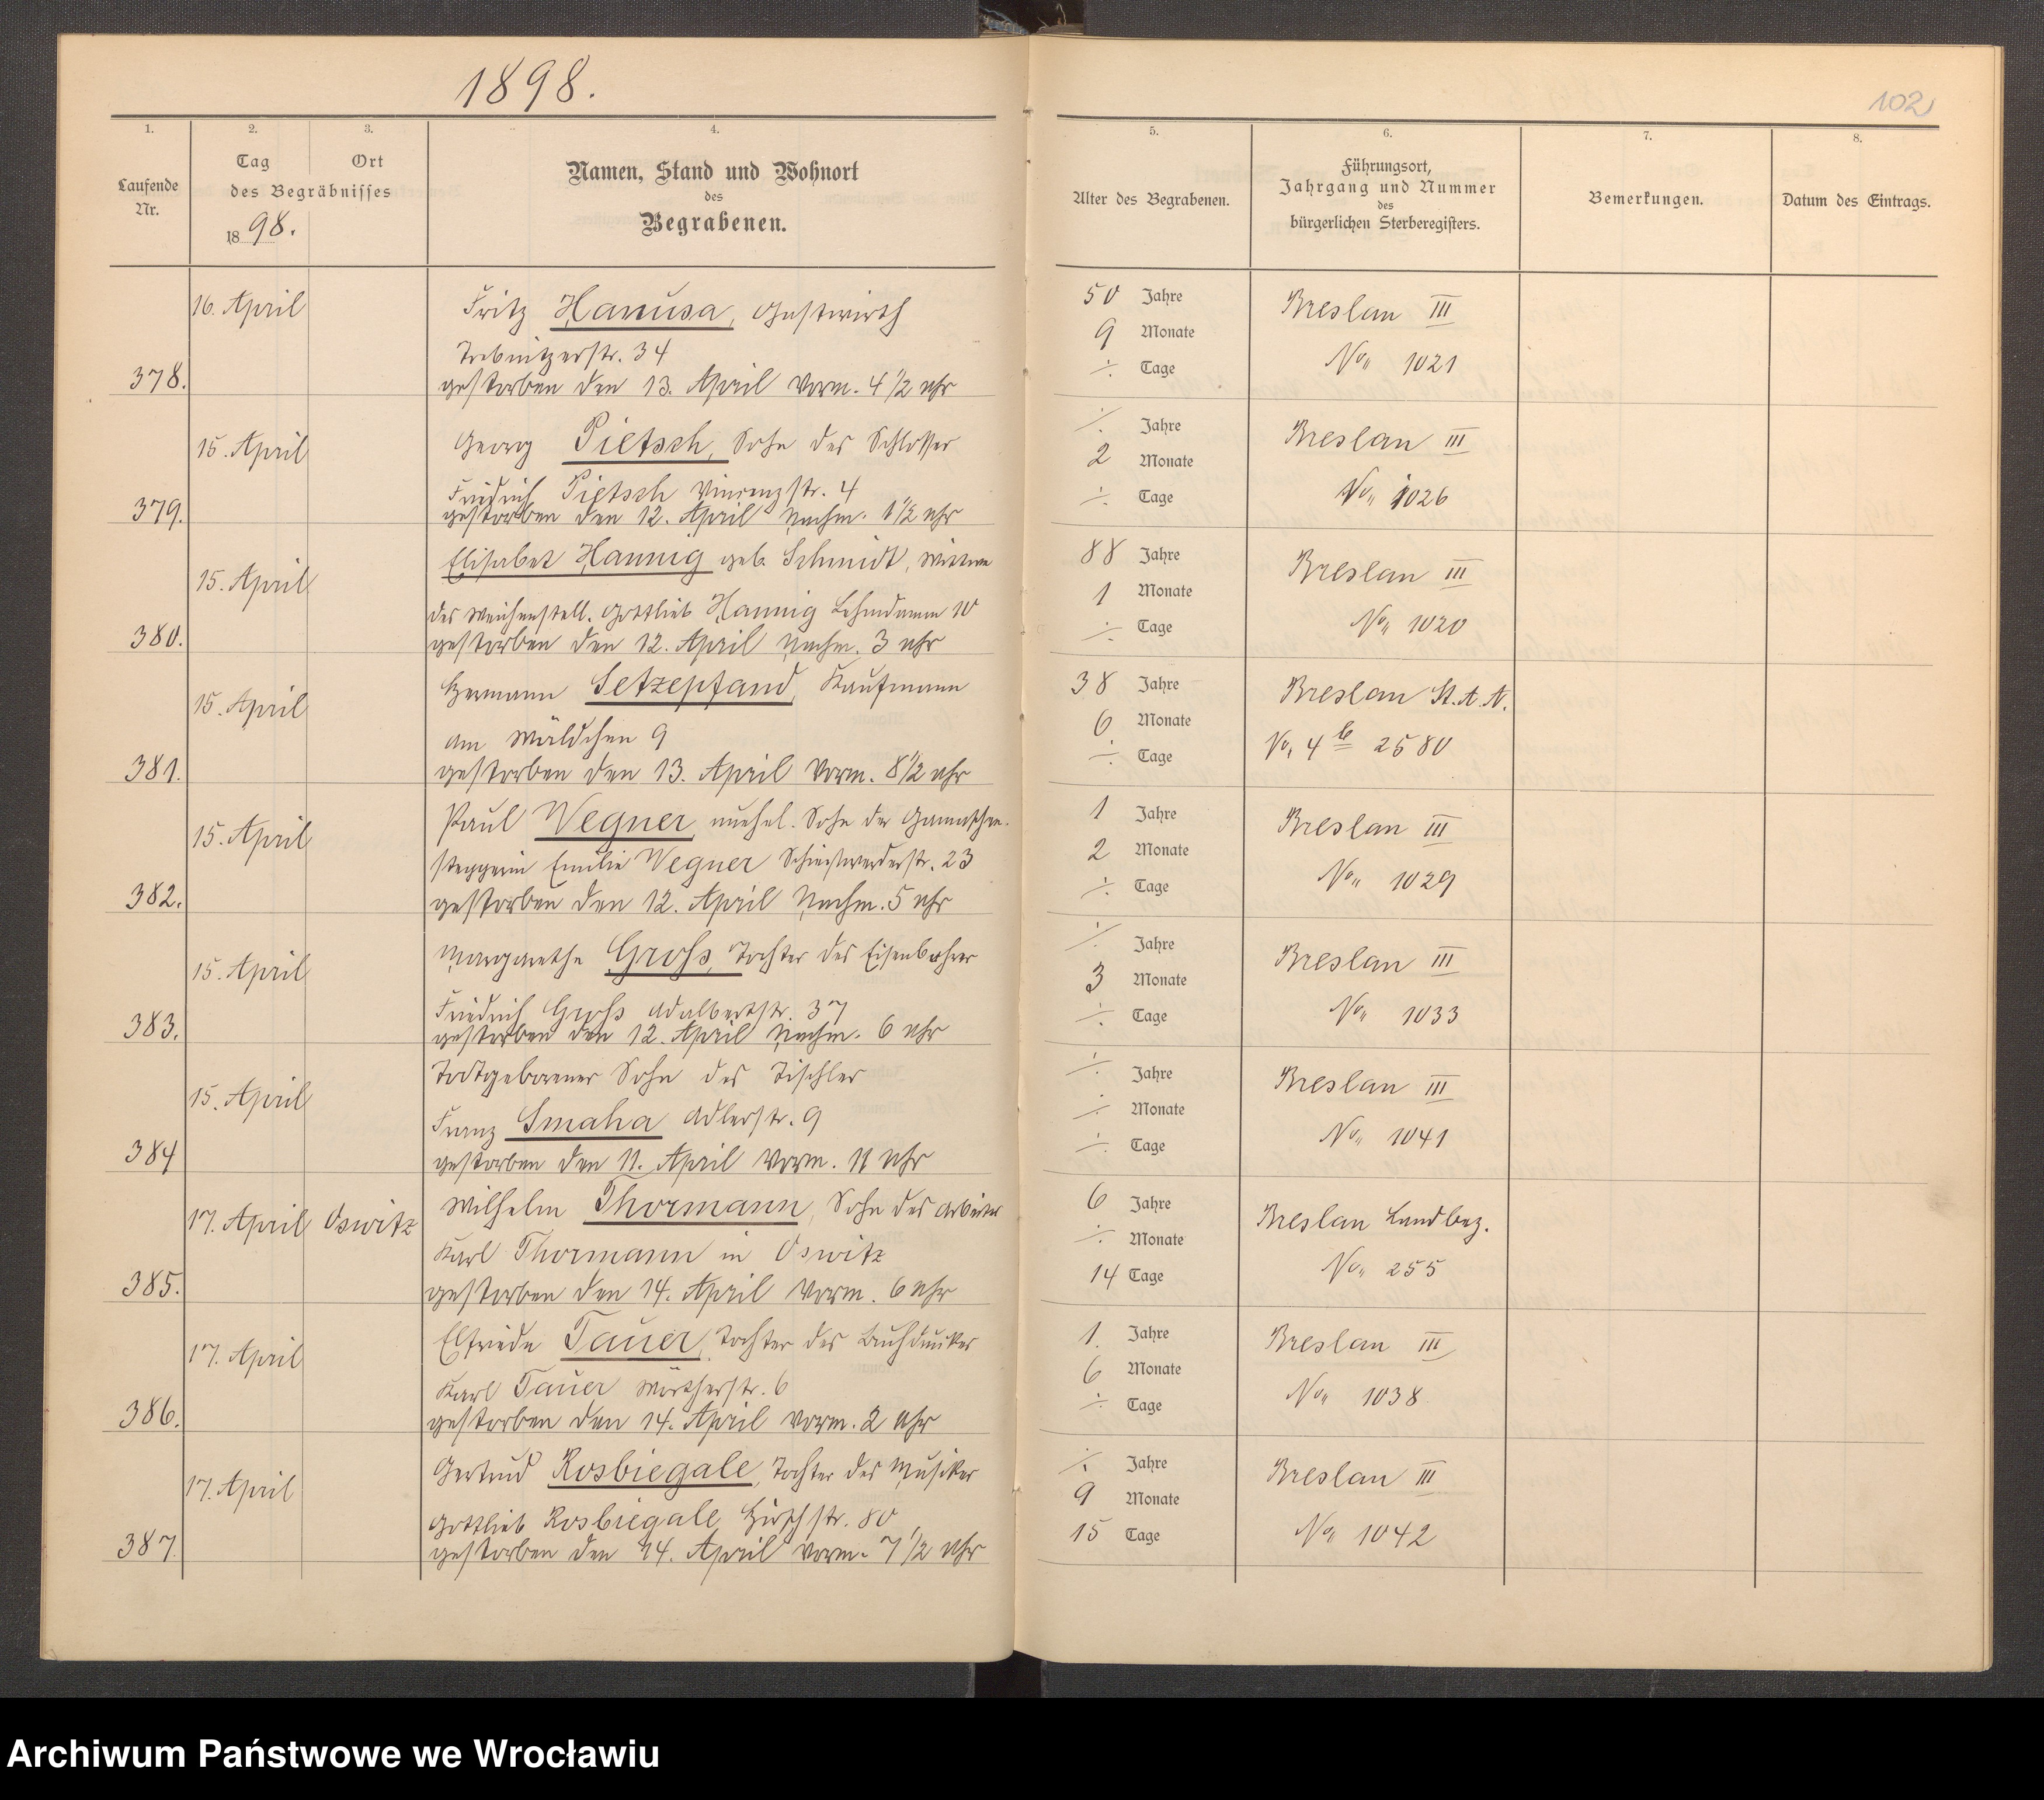 1898.
102
1.
2.
3.
4.
Laufende Nr.
Tag
Ort
des Begräbnisses
1898.
Namen, Stand und Wohnort
des
Begrabenen.
5.
6.
7.
8.
Alter des Begrabenen.
Führungsort,
Jahrgang und Nummer
des
bürgerlichen Sterberegisters.
Bemerkungen.
Datum des Eintrags.
16. April
Fritz Hanusa, Gastwirth
Trebnitzerstr. 34
378.
gestorben den 13. April Vorm. 4 1/2 Uhr
50 Jahre
9 Monate
÷ Tage
Breslau III
No 1021
15. April
Georg Pietsch, Sohn des Schlosser
Friedrich Pietsch Vincenzstr. 4
379.
gestorben den 12. April Nachm. 1 1/2 Uhr
÷ Jahre
2 Monate
÷ Tage
Breslau III
No 1026
15. April
Elisabet Hannig geb. Schmidt, Wittwe
des Weichenstell. Gottlieb Hannig Lehmdamm 10
380.
gestorben den 12. April Nachm. 3 Uhr
88 Jahre
1 Monate
÷ Tage
Breslau III
No 1020
15. April
Hermann Setzepfand, Kaufmann
Am Wäldchen 9
381.
gestorben den 13. April Vorm. 8 1/2 Uhr
38 Jahre
6 Monate
÷ Tage
Breslau St. A. N.
No 4 b 2580
15. April
Paul Wegner, unehel. Sohn der Gamaschen-
stepperin Emilie Wegner Schiesswerderstr. 23
382.
gestorben den 12. April Nachm. 5 Uhr
1 Jahre
2 Monate
÷ Tage
Breslau III
No 1029
15. April
Margarethe Groß, Tochter des Eisenbohrer
Friedrich Groß Adalbertstr. 37
383.
gestorben den 12. April Nachm. 6 Uhr
÷ Jahre
3 Monate
÷ Tage
Breslau III
No 1033
15. April
Todtgeborener Sohn des Tischler
Franz Smaha Adlerstr. 9
384
gestorben den 11. April Vorm. 11 Uhr
÷ Jahre
÷ Monate
÷ Tage
Breslau III
No 1041
17. April Oswitz
Wilhelm Thormann, Sohn des Arbeiter
Karl Thormann in Oswitz
385.
gestorben den 14. April Vorm. 6 Uhr
6 Jahre
÷ Monate
14 Tage
Breslau Landbez.
No 255
17. April
Elfriede Tauer, Tochter des Buchdrucker
Karl Tauer Wörtherstr. 6
386.
gestorben den 14. April Vorm. 2 Uhr
1. Jahre
6 Monate
÷ Tage
Breslau III
No 1038
17. April
Gertrud Rosbiegale, Tochter des Musiker
Gottlieb Rosbiegale Hirschstr. 80
387.
gestorben den 14. April Vorm. 7 1/2 Uhr
÷ Jahre
9 Monate
15 Tage
Breslau III
No 1042
Archiwum Państwowe we Wrocławiu